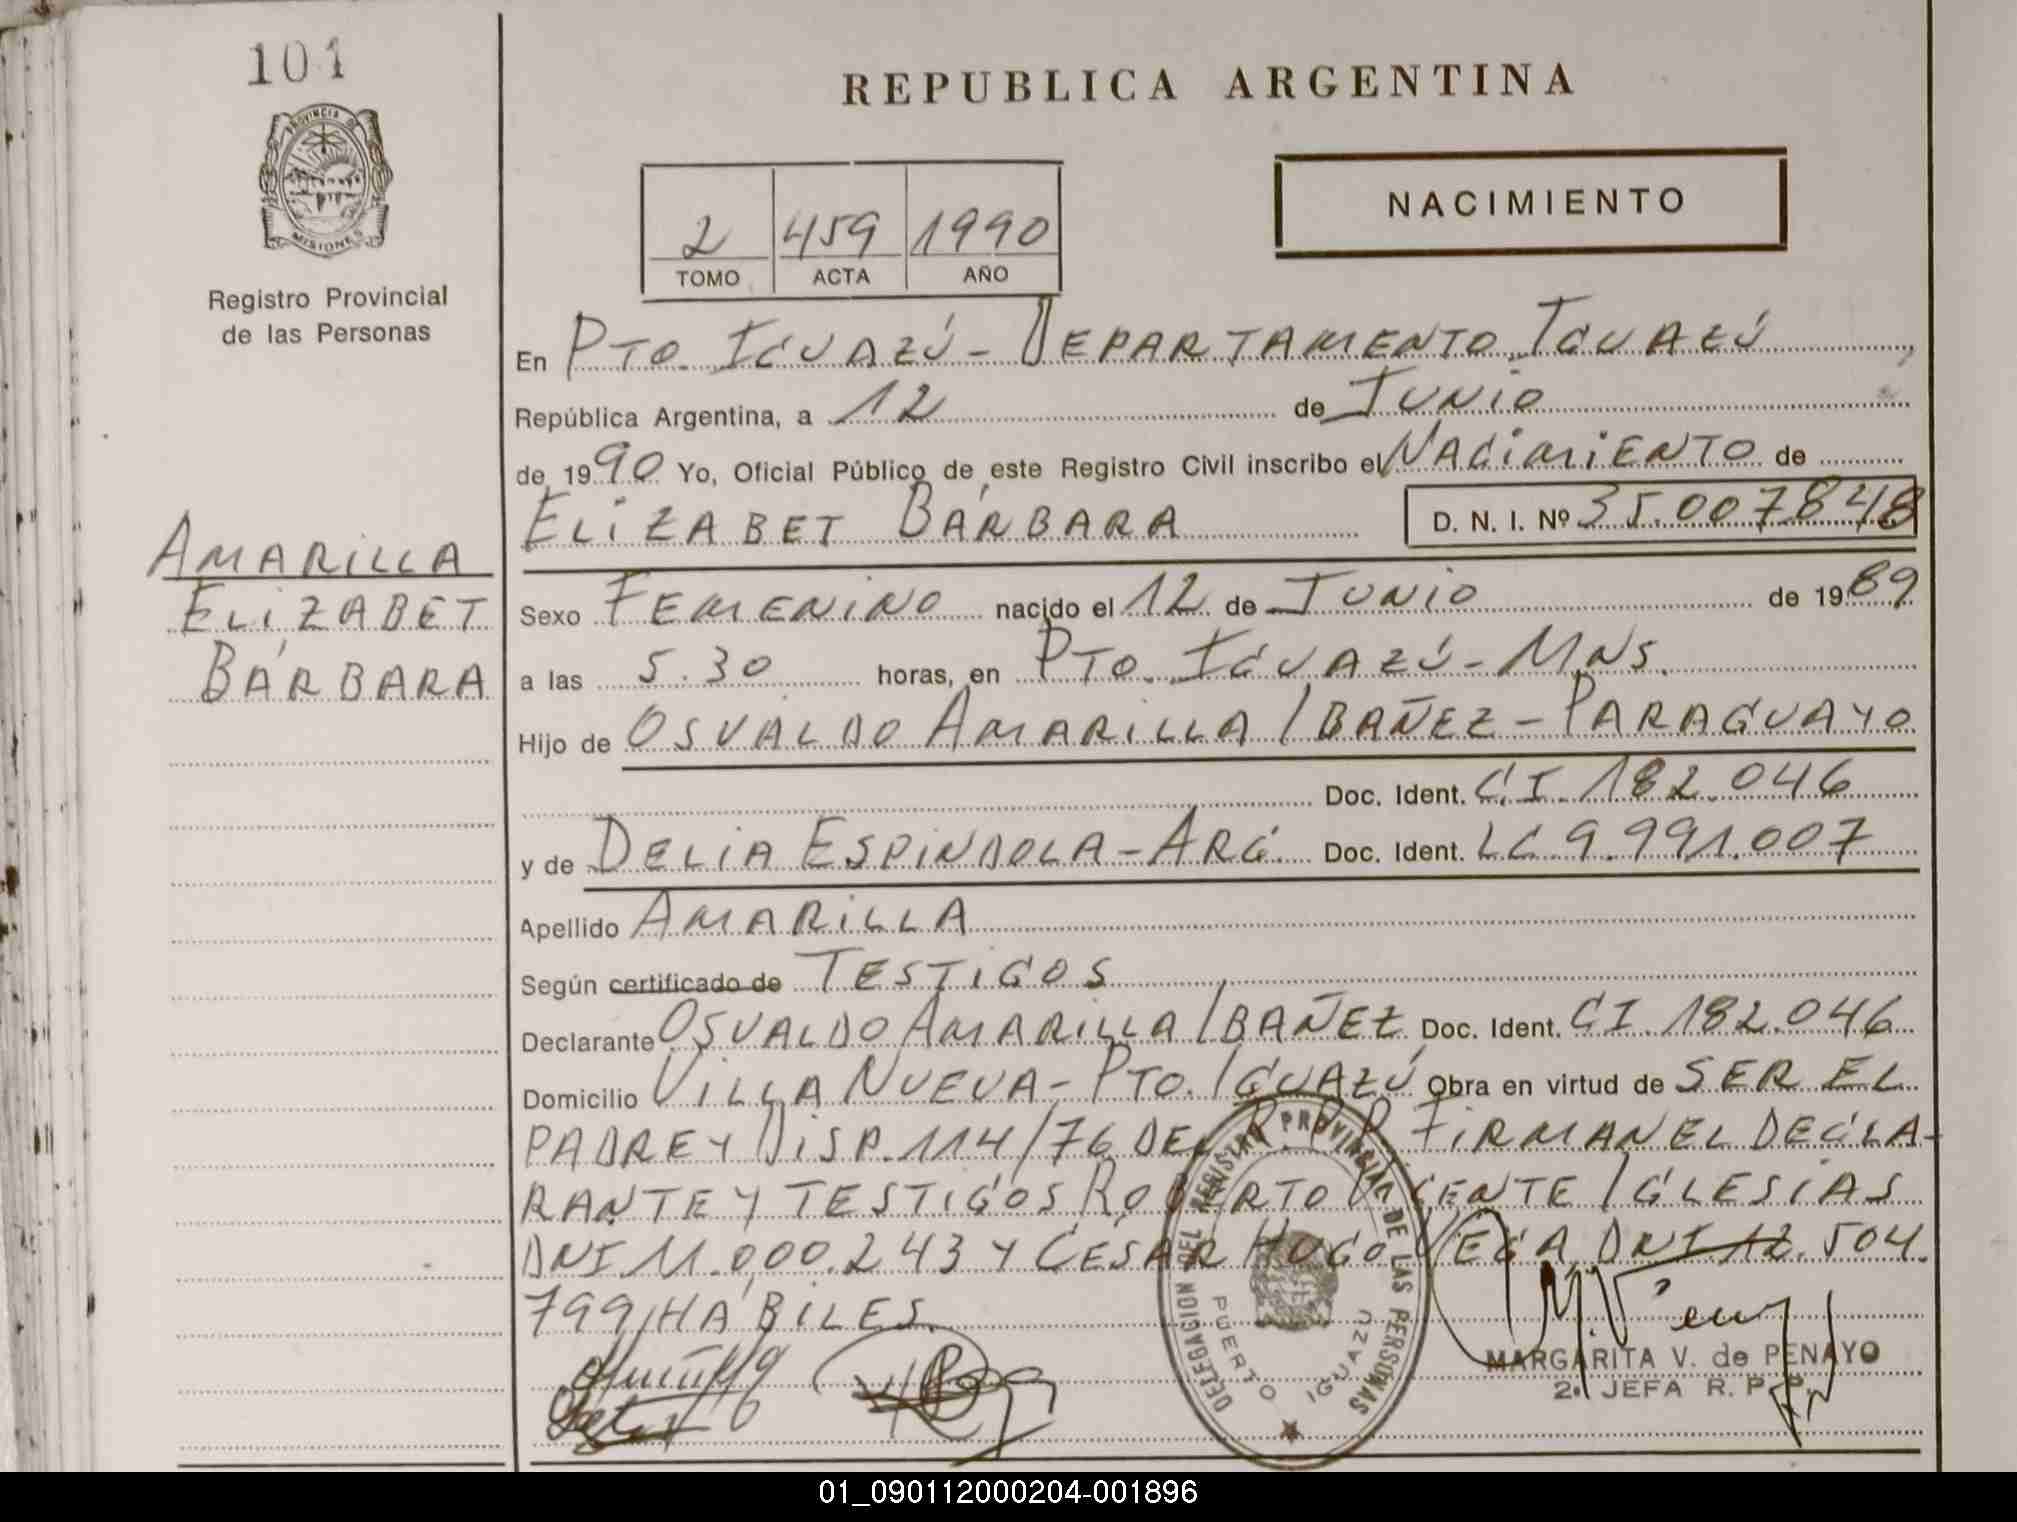 101
REPUBLICA ARGENTINA
PROVINCIA DE
MISIONES
NACIMIENTO
2 459 1990
TOMO ACTA AÑO
Registro Provincial
de las Personas
En PTO. IGUAZÚ - DEPARTAMENTO IGUAZÚ,
República Argentina, a 12 de JUNIO
de 1990 Yo, Oficial Público de este Registro Civil inscribo el NACIMIENTO de
ELIZABET BÁRBARA D. N. I. Nº 35.007848
AMARILLA
ELIZABET
BÁRBARA
Sexo FEMENINO nacido el 12 de JUNIO de 1989
a las 5.30 horas, en PTO. IGUAZÚ - MNS.
Hijo de OSVALDO AMARILLA IBAÑEZ - PARAGUAYO
Doc. Ident. CI 182.046
y de DELIA ESPINDOLA - ARG. Doc. Ident. LC 9.991.007
Apellido AMARILLA
Según certificado de TESTIGOS
Declarante OSVALDO AMARILLA IBAÑEZ Doc. Ident. CI 182.046
Domicilio VILLA NUEVA - PTO. IGUAZÚ Obra en virtud de SER EL
PADRE Y DISP. 114/76 DEL R.P.P. FIRMAN EL DECLA-
RANTE Y TESTIGOS ROBERTO VICENTE IGLESIAS
DNI 11.000.243 Y CESAR HUGO VEGA DNI 12.504.
799, HÁBILES.
DELEGACION DEL REGISTRO PROVINCIAL DE LAS PERSONAS
PUERTO IGUAZU
MARGARITA V. de PENAYO
2. JEFA R. P. P.
01_090112000204-001896